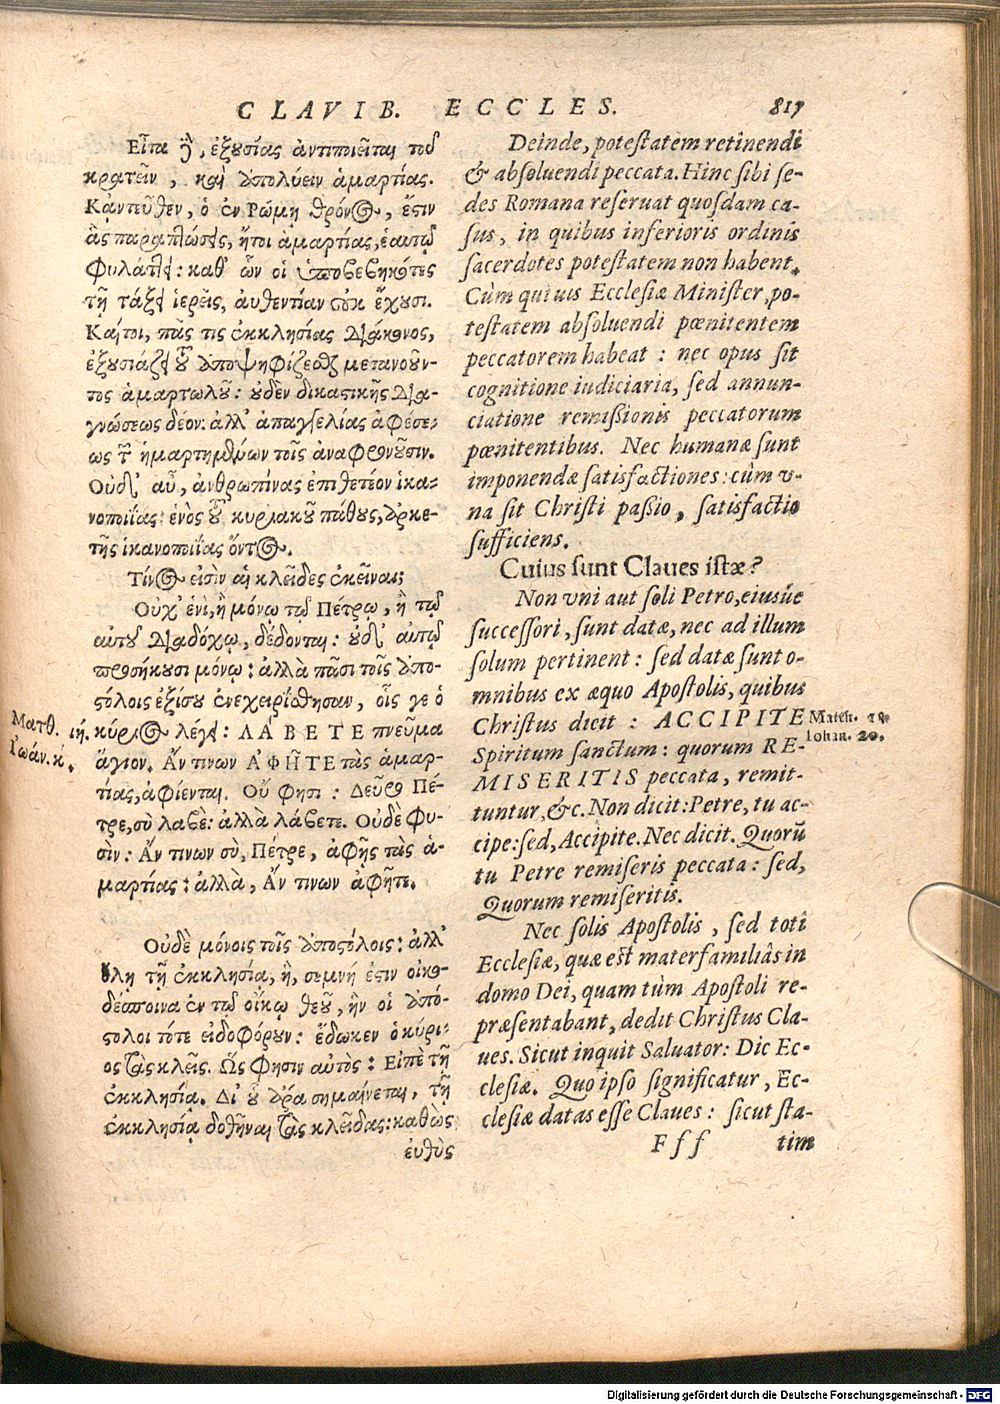 CLAVIB. ECCLES. 817
Εἶτα ἢ, ἐξουσίας ἀντιποιεῖται τοῦ
κρατεῖν, καὶ ἀπολύειν ἁμαρτίας.
Κἀντεῦθεν, ὁ ἐν Ῥώμῃ θρόνος, ἔστιν
ἃς παραπλώσεις, ἤτοι ἁμαρτίας, ἑαυτῷ
φυλάττει: καθ' ὧν οἱ ὑποβεβηκότες
τῇ τάξει ἱερεῖς, αὐθεντίαν οὐκ ἔχουσι.
Καίτοι, πᾶς τις ἐκκλησίας διάκονος,
ἐξουσιάζει τοῦ ἀποψηφίζεσθαι μετανοοῦν-
τος ἁμαρτωλοῦ: οὐδὲν δικαστικῆς δια-
γνώσεως δέον: ἀλλ' ἀπαγγελίας ἀφέσε-
ως τῶν ἡμαρτημένων τοῖς ἀναφρονοῦσιν.
Οὐδ' αὖ, ἀνθρωπίνας ἐπιθετέον ἱκα-
νοποιΐας: ἑνὸς τοῦ κυριακοῦ πάθους, ἀρκε-
τῆς ἱκανοποιΐας ὄντος.
Τίνος εἰσὶν αἱ κλεῖδες ἐκεῖναι;
Οὐχ' ἑνὶ, ἢ μόνῳ τῷ Πέτρῳ, ἢ τῷ
αὐτοῦ διαδόχῳ, δέδονται: οὐδ' αὐτῷ
προσήκουσι μόνῳ: ἀλλὰ πᾶσι τοῖς ἀπο-
στόλοις ἐξίσου ἐνεχειρίσθησαν, οἷς γε ὁ
κύριος λέγει: ΛΑΒΕΤΕ πνεῦμα
ἅγιον. Ἄν τινων ΑΦΗΤΕ τὰς ἁμαρ-
τίας, ἀφίενται. Οὔ φησι: Δεῦρο Πέ-
τρε, σὺ λαβὲ: ἀλλὰ λάβετε. Οὐδὲ φη-
σὶν: Ἄν τινων σὺ, Πέτρε, ἀφῇς τὰς ἁ-
μαρτίας: ἀλλὰ, Ἄν τινων ἀφῆτε.
Ματθ. ιή.
Ἰωάν. κ.
Οὐδὲ μόνοις τοῖς ἀποστόλοις: ἀλλ'
ὅλῃ τῇ ἐκκλησίᾳ, ἣ, σεμνή ἐστιν οἰκο-
δέσποινα ἐν τῷ οἴκῳ θεοῦ, ἣν οἱ ἀπό-
στολοι τότε εἰδοφόρουν: ἔδωκεν ὁ κύρι-
ος τὰς κλεῖς. Ὥς φησιν αὐτὸς: Εἰπὲ τῇ
ἐκκλησίᾳ. Δι' οὗ ἄρα σημαίνεται, τῇ
ἐκκλησίᾳ δοθῆναι τὰς κλεῖδας: καθὼς
εὐθὺς
Deinde, potestatem retinendi
& absoluendi peccata. Hinc sibi se-
des Romana reseruat quosdam ca-
sus, in quibus inferioris ordinis
sacerdotes potestatem non habent.
Cùm quiuis Ecclesiæ Minister, po-
testatem absoluendi pœnitentem
peccatorem habeat: nec opus sit
cognitione iudiciaria, sed annun-
ciatione remissionis peccatorum
pœnitentibus. Nec humanæ sunt
imponendæ satisfactiones: cùm v-
na sit Christi passio, satisfactio
sufficiens.
Cuius sunt Claues istæ?
Non vni aut soli Petro, eiusúe
successori, sunt datæ, nec ad illum
solum pertinent: sed datæ sunt o-
mnibus ex æquo Apostolis, quibus
Christus dicit: ACCIPITE
Spiritum sanctum: quorum RE-
MISERITIS peccata, remit-
tuntur, &c. Non dicit: Petre, tu ac-
cipe: sed, Accipite. Nec dicit. Quorū
tu Petre remiseris peccata: sed,
Quorum remiseritis.
Matth. 18.
Iohan. 20.
Nec solis Apostolis, sed toti
Ecclesiæ, quæ est materfamiliâs in
domo Dei, quam tùm Apostoli re-
præsentabant, dedit Christus Cla-
ues. Sicut inquit Saluator: Dic Ec-
clesiæ. Quo ipso significatur, Ec-
clesiæ datas esse Claues: sicut sta-
Fff tim
Digitalisierung gefördert durch die Deutsche Forschungsgemeinschaft - DFG